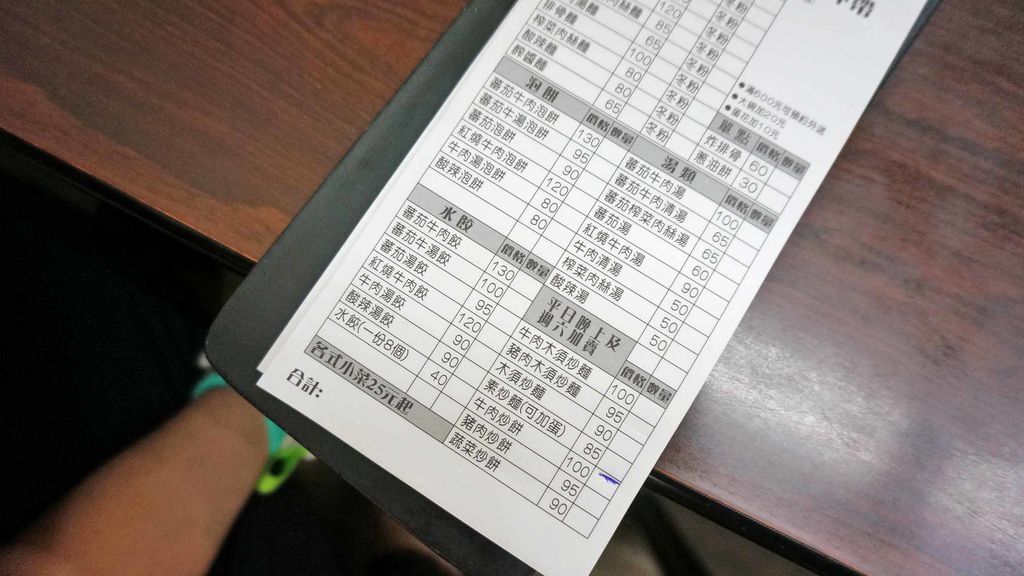 肉絲麵 120 冬粉
排骨麵 85 冬粉
榨菜肉絲麵 65 冬粉
酸辣麵 100 冬粉
80 冬粉
80 冬粉
65 冬粉
泡餅 價格 數量
蕃茄牛肉泡餅 130
蕃茄牛湯泡餅 95
蕃茄泡餅 90
紅燒牛肉泡餅 120
牛肉湯泡餅 80
酸辣泡餅 80
水餃 價格 數量
蕃茄牛肉餃 130
蕃茄牛湯餃 100
蕃茄湯餃 95
紅燒牛肉餃 120
牛肉湯餃 90
酸辣湯餃 90
水餃(一份8個) 40
各式小菜25元起
合計:
●滿600元可預約外送
●大碗加20元
●蛋花加10元
單點 價格 數量
炸排骨 60
蔥油餅 30
湯類 價格 數量
蕃茄牛肉湯 100
蕃茄牛肉清湯 65
蕃茄榨菜肉絲湯 65
蕃茄湯 60
紅燒牛肉湯 90
牛肉清湯 50
榨菜肉絲湯 50
酸辣湯 50
平日晚上及
週六加賣 價格 數量
牛肉木須炒麵 100
豬肉木須炒麵 95
木須炒麵 90
素炒麵(可加蛋) 85
牛肉炒餅 100
豬肉炒餅 95
蔬菜炒餅 90